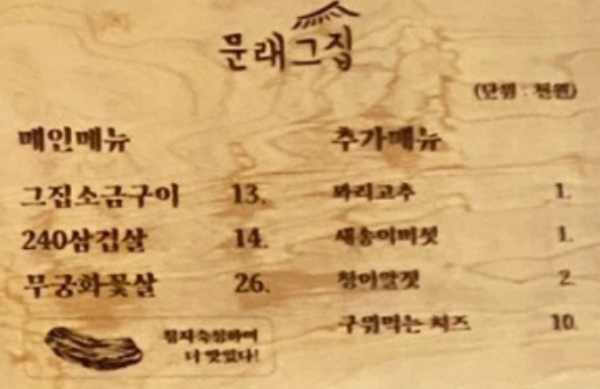 문래그집
(단위 : 천원)
메인메뉴
그집소금구이 13.
240삼겹살 14.
무궁화꽃살 26.
집지숙성하여
더 맛있다!
추가메뉴
꽈리고추 1.
새송이버섯 1.
청어알젓 2.
구워먹는 치즈 10.